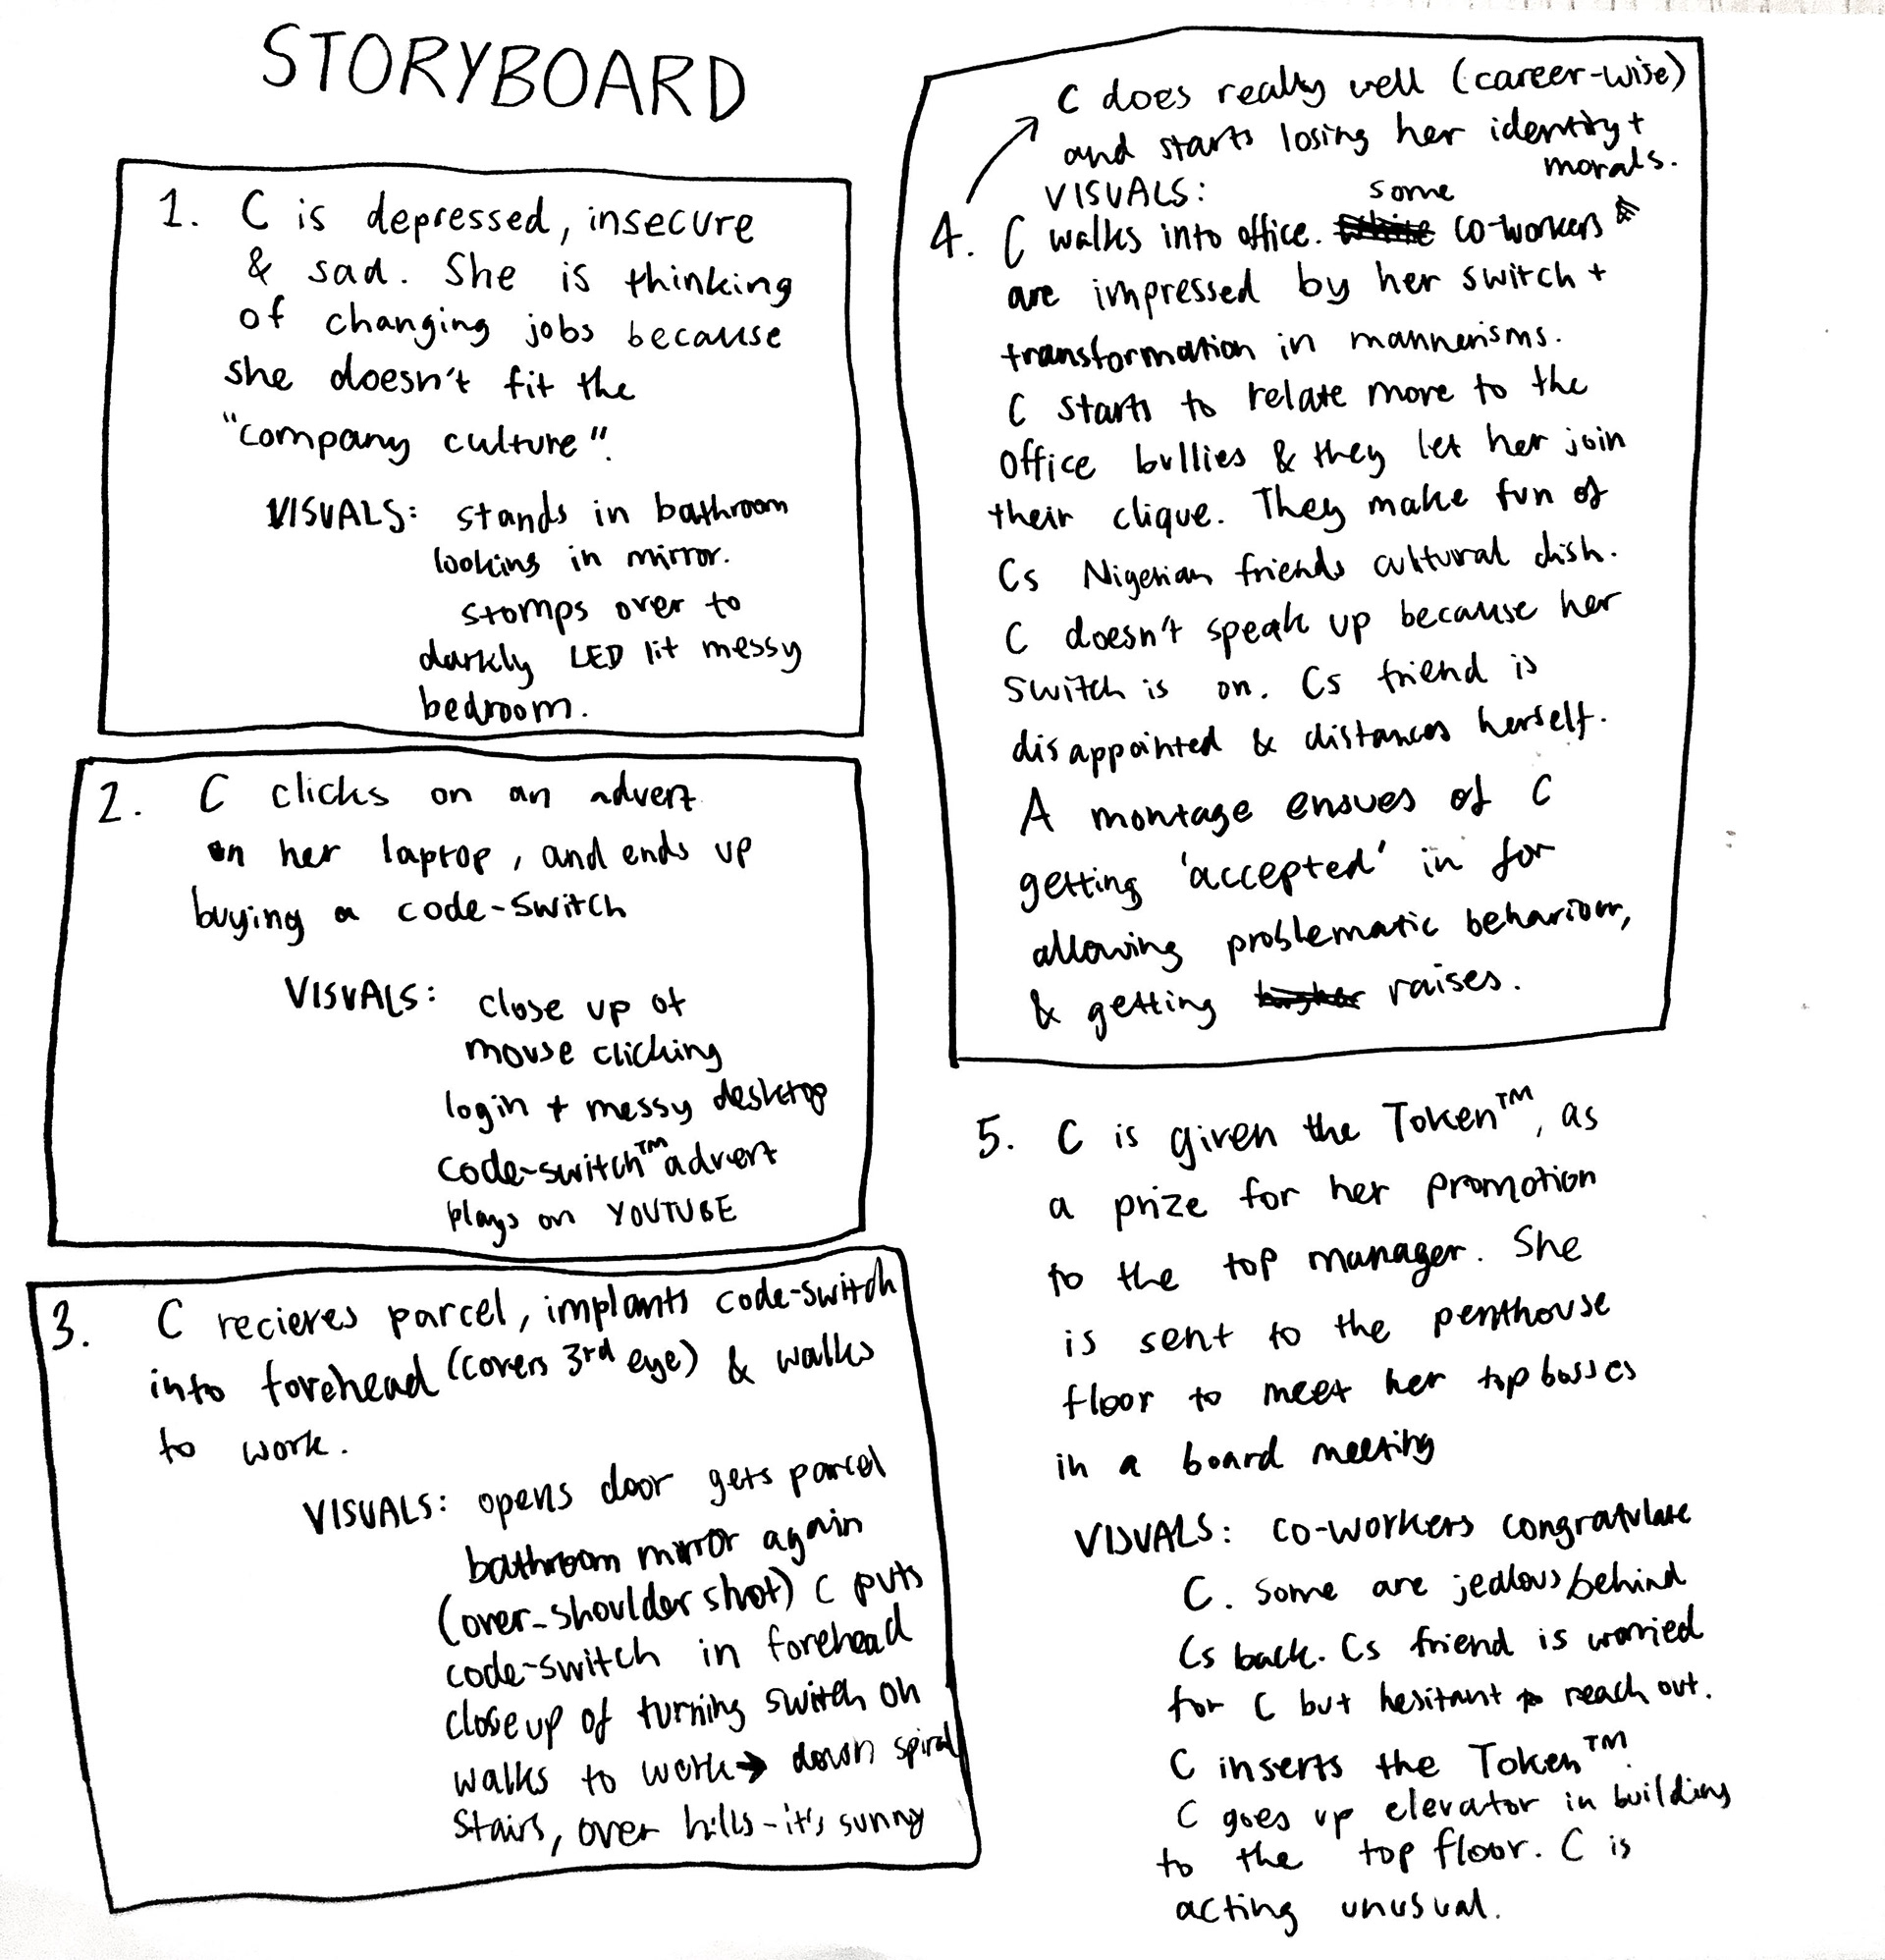 STORYBOARD
1. C is depressed, insecure
& sad. She is thinking
of changing jobs because
she doesn't fit the
"company culture".
VISUALS: stands in bathroom
looking in mirror.
stomps over to
darkly LED lit messy
bedroom.
2. C clicks on an advert
on her laptop, and ends up
buying a code-switch
VISUALS: close up of
mouse clicking
login + messy desktop
code-switch™ advert
plays on YOUTUBE
3. C recieves parcel, implants code-switch
into forehead (covers 3rd eye) & walks
to work.
VISUALS: opens door gets parcel
bathroom mirror again
(over-shoulder shot) C puts
code-switch in forehead
close up of turning switch on
walks to work → down spiral
stairs, over hills - it's sunny
C does really well (career-wise)
and starts losing her identity +
morals.
VISUALS: some
4. C walks into office. co-workers
are impressed by her switch +
transformation in mannerisms.
C starts to relate more to the
office bullies & they let her join
their clique. They make fun of
Cs Nigerian friends cultural dish.
C doesn't speak up because her
switch is on. Cs friend is
disappointed & distances herself.
A montage ensues of C
getting 'accepted' in for
allowing problematic behaviour,
& getting raises.
5. C is given the Token™, as
a prize for her promotion
to the top manager. She
is sent to the penthouse
floor to meet her top bosses
in a board meeting
VISUALS: co-workers congratulate
C. Some are jealous behind
Cs back. Cs friend is worried
for C but hesitant to reach out.
C inserts the Token™.
C goes up elevator in building
to the top floor. C is
acting unusual.